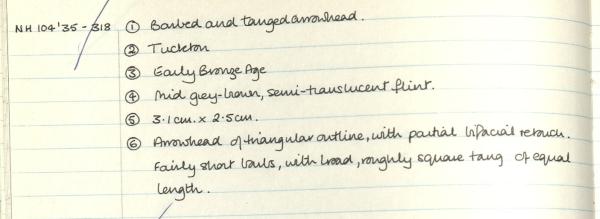 NH 104'35-318 ① Barbed and tanged arrowhead.
② Tuckton
③ Early Bronze Age
④ Mid grey-brown, semi-translucent flint.
⑤ 3.1cm. x 2.5cm.
⑥ Arrowhead of triangular outline, with partial bifacial retouch.
Fairly short barbs, with broad, roughly square tang of equal
length.